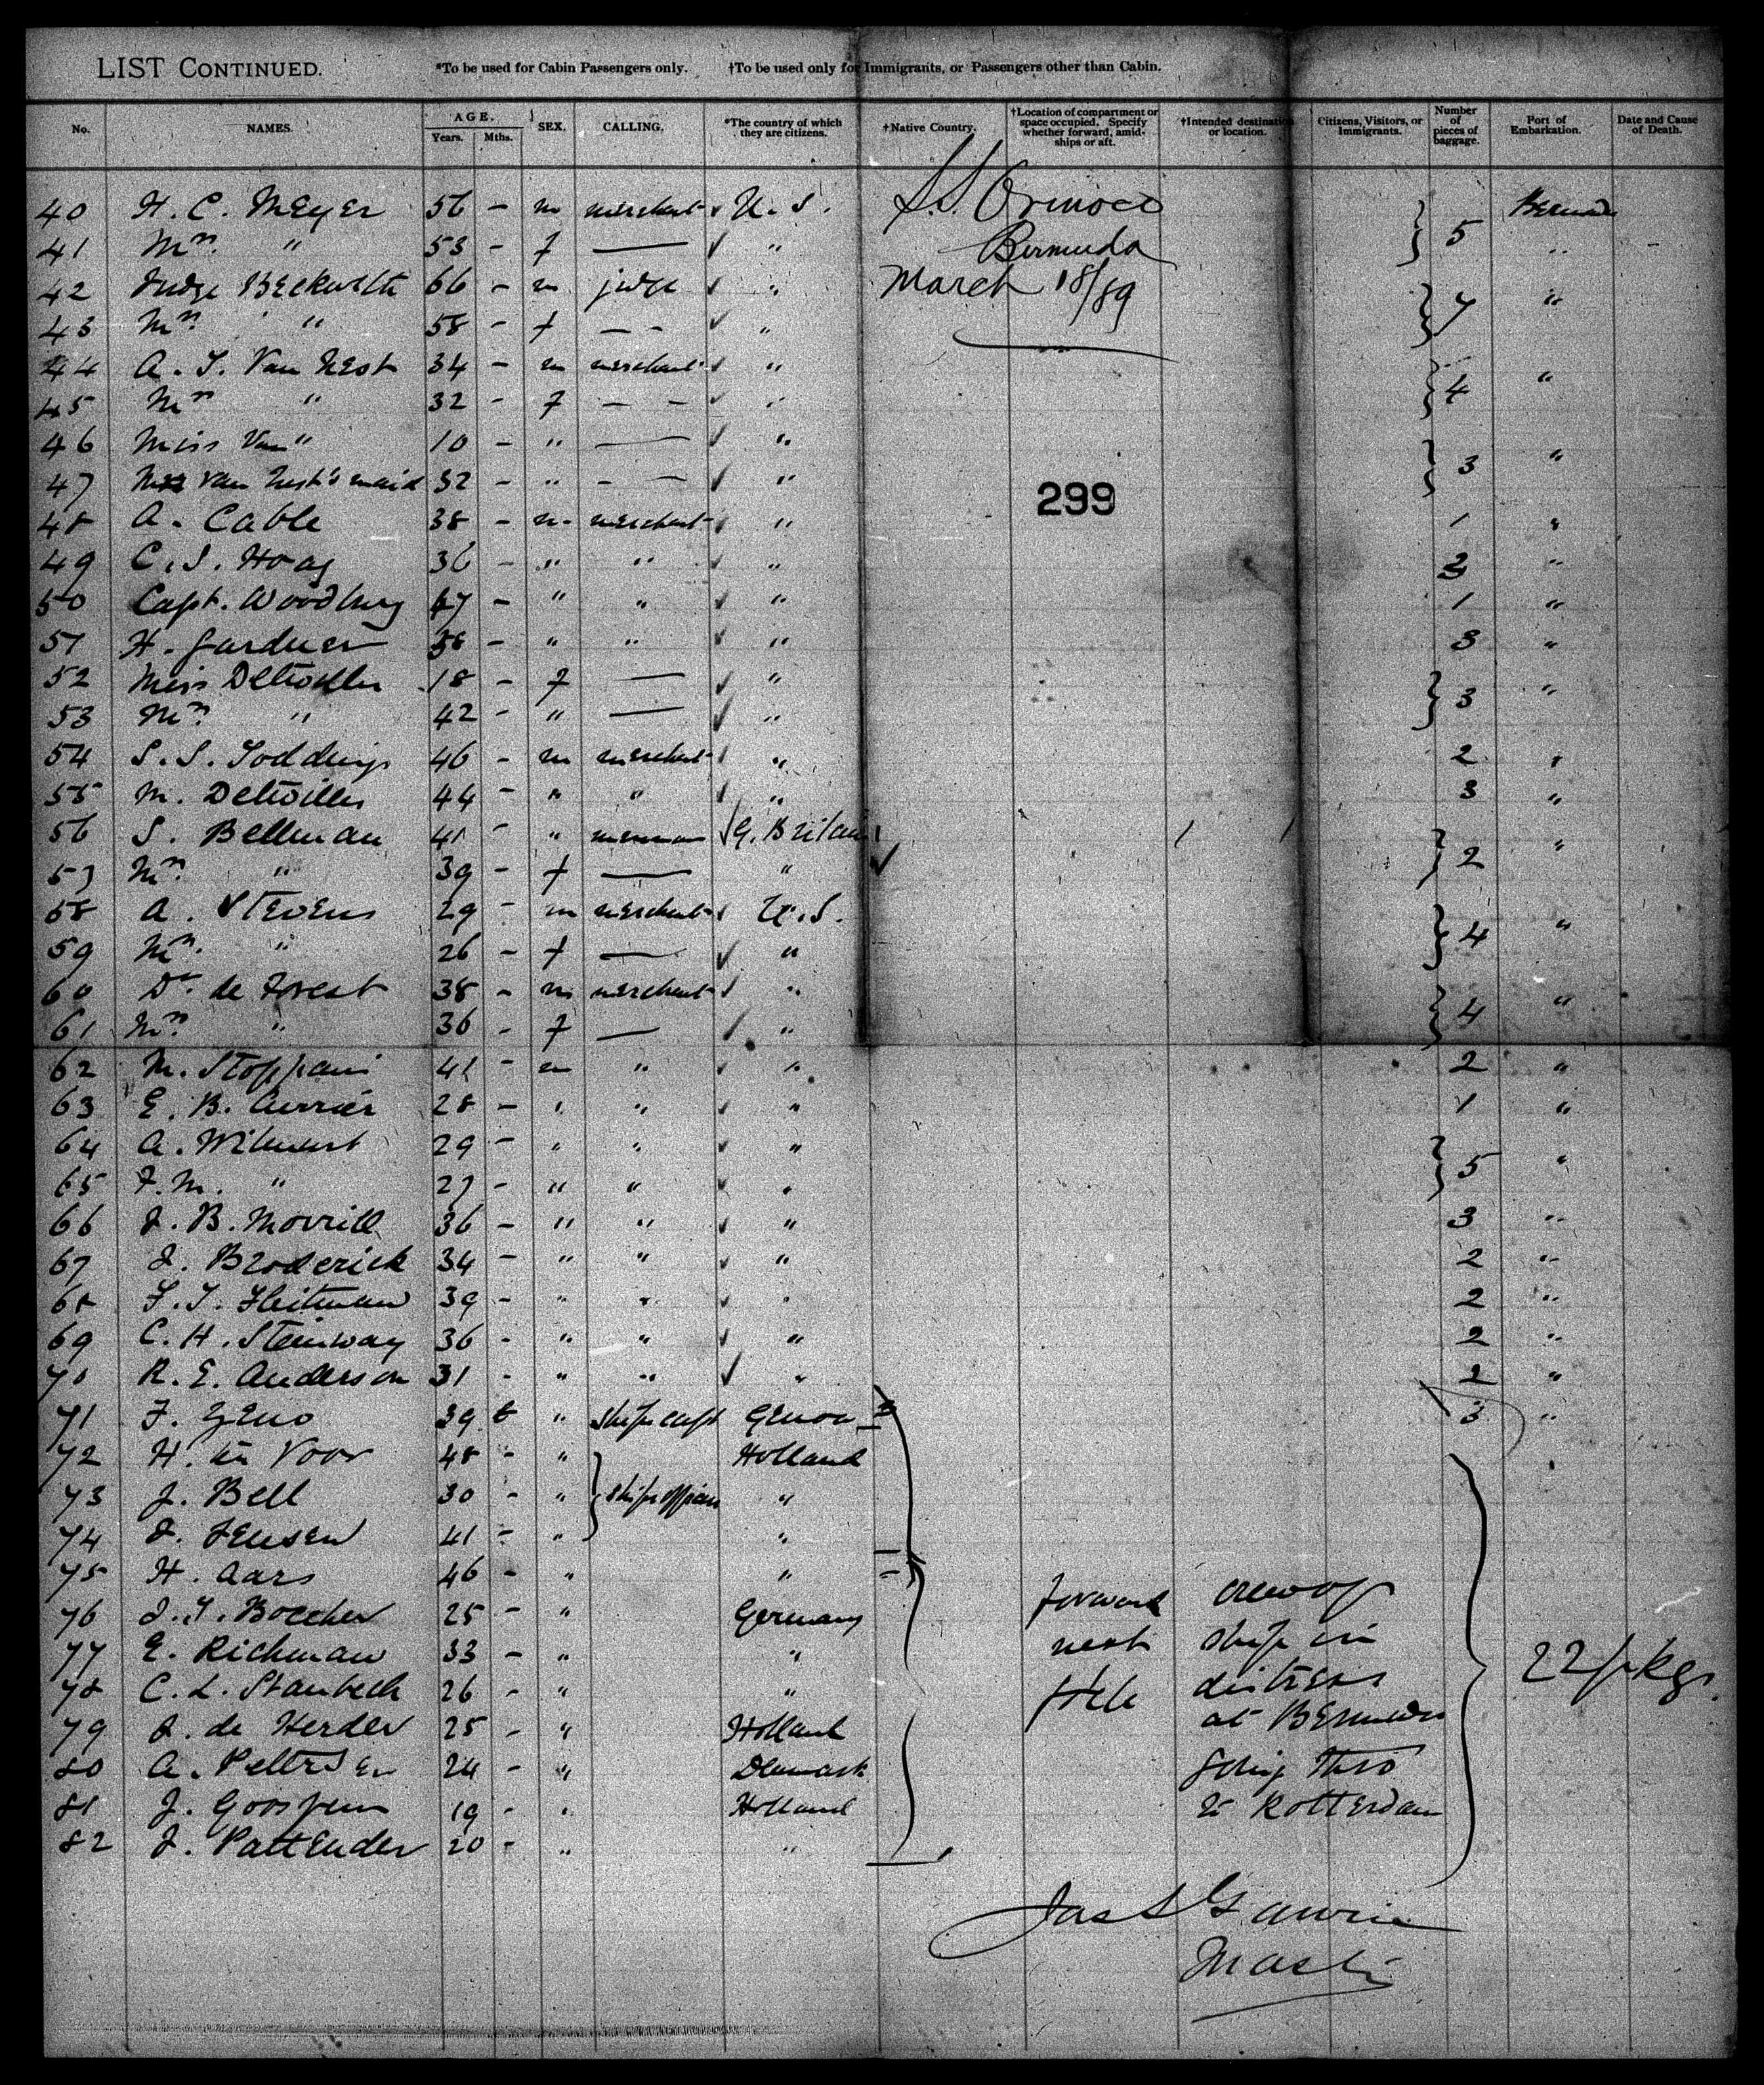 LIST CONTINUED. *To be used for Cabin Passengers only. †To be used only for Immigrants, or Passengers other than Cabin.
No. NAMES. AGE. Years. Mths. SEX. CALLING. *The country of which they are citizens. †Native Country. †Location of compartment or space occupied. Specify whether forward, amidships or aft. †Intended destination or location. Citizens, Visitors, or Immigrants. Number of pieces of baggage. Port of Embarkation. Date and Cause of Death.
S.S. Orinoco
Bermuda
March 18/89
299
40 H. C. Meyer 56 - m merchant ✓ U. S. 5 Bermuda
41 Mrs. " 53 - f — ✓ " "
42 Judge Beckwith 66 - m judge ✓ " 7 "
43 Mrs. " 58 - f — ✓ "
44 A. T. Van Nest 34 - m merchant ✓ " 4 "
45 Mrs " 32 - f - - ✓ "
46 Miss Van " 10 - " — ✓ " 3 "
47 Van Nest's maid 32 - " - - ✓ "
48 A. Cable 38 - m merchant ✓ " 1 "
49 C. S. Hoag 36 - " " ✓ " "
50 Capt. Woodbury 47 - " " ✓ " 1 "
51 H. Gardner 38 - " " ✓ " 3 "
52 Miss Detwiller 18 - f — ✓ " 3 "
53 Mrs. " 42 - " — ✓ "
54 S. S. 46 - m merchant ✓ " 2 "
55 M. Detwiller 44 - " " ✓ " 3 "
56 S. Bellman 41 - " ✓ G. Britain 2 "
57 Mrs. " 39 - f — " ✓
58 A. Stevens 29 - m merchant ✓ U. S. 4 "
59 Mrs. " 26 - f — ✓ "
60 Dr. de Forest 38 - m merchant ✓ " 4 "
61 Mrs. " 36 - f — ✓ "
62 M. Stoppani 41 - m " ✓ " 2 "
63 E. B. Currier 28 - " " ✓ " 1 "
64 A. 29 - " " ✓ " 5 "
65 F. M. " 27 - " " ✓ "
66 J. B. Morrill 36 - " " ✓ " 3 "
67 J. Broderick 34 - " " ✓ " 2 "
68 F. T. Heitman 39 - " " ✓ " 2 "
69 C. H. Steinway 36 - " " ✓ " 2 "
70 R. E. Anderson 31 - " " ✓ " 2 "
71 F. Zeno 39 " ships capt Genoa 3 "
72 H. Voor 48 - " Holland "
73 J. Bell 30 - " ships officers "
74 J. Jensen 41 - " "
75 H. Aars 46 - " "
76 J. T. Boecher 25 - " Germany
77 E. Richman 33 - " "
78 C. L. Staubech 26 - " "
79 J. de Herder 25 - " Holland
80 A. Petersen 24 - " Denmark
81 J. 19 - " Holland
82 J. Pattender 20 - " "
forward
next
crew of
ship in
distress
at Bermuda
going thro
to Rotterdam
22 pkgs.
Jas
Master